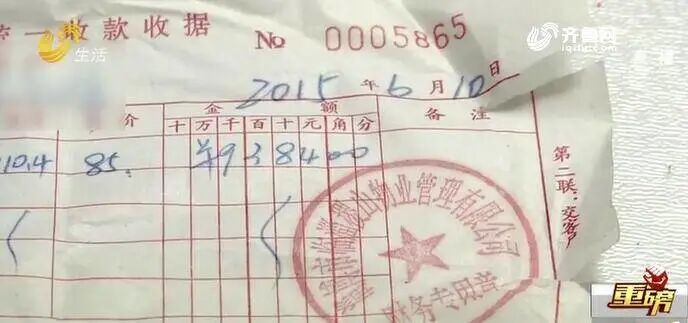 生活
统一收款收据 No 0005865
齐鲁网
iqilu.com
2015年6月10日
价 金额 备注
十万千百十元角分
110.4 85. ¥938400
第二联:交客户
物业管理有限公司
财务专用章
重磅